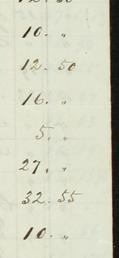 10. "
12. 50
16. "
5. "
27. "
32. 55
10. "